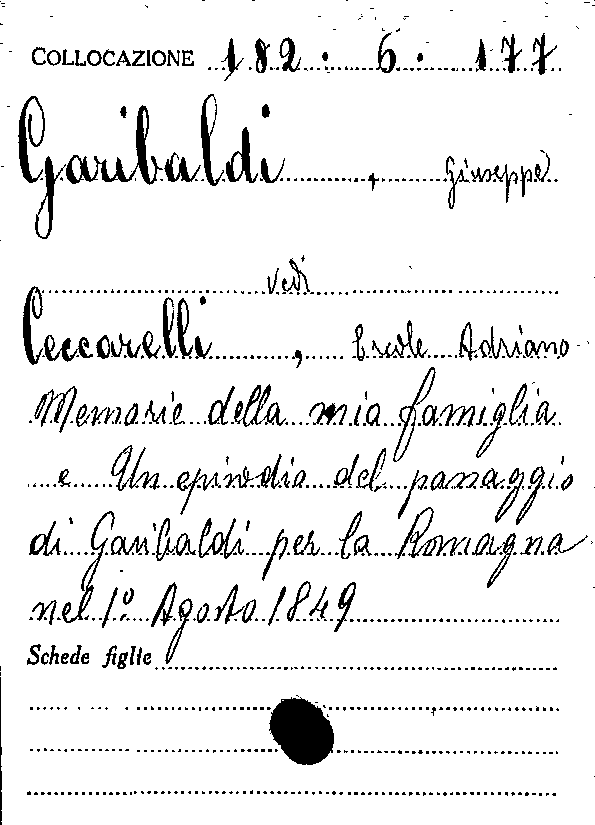 COLLOCAZIONE 182. 6. 177
Garibaldi, Giuseppe
vedi
Ceccarelli, Ercole Adriano
Memorie della mia famiglia
e Un episodio del passaggio
di Garibaldi per la Romagna
nel 1º Agosto 1849
Schede figlie